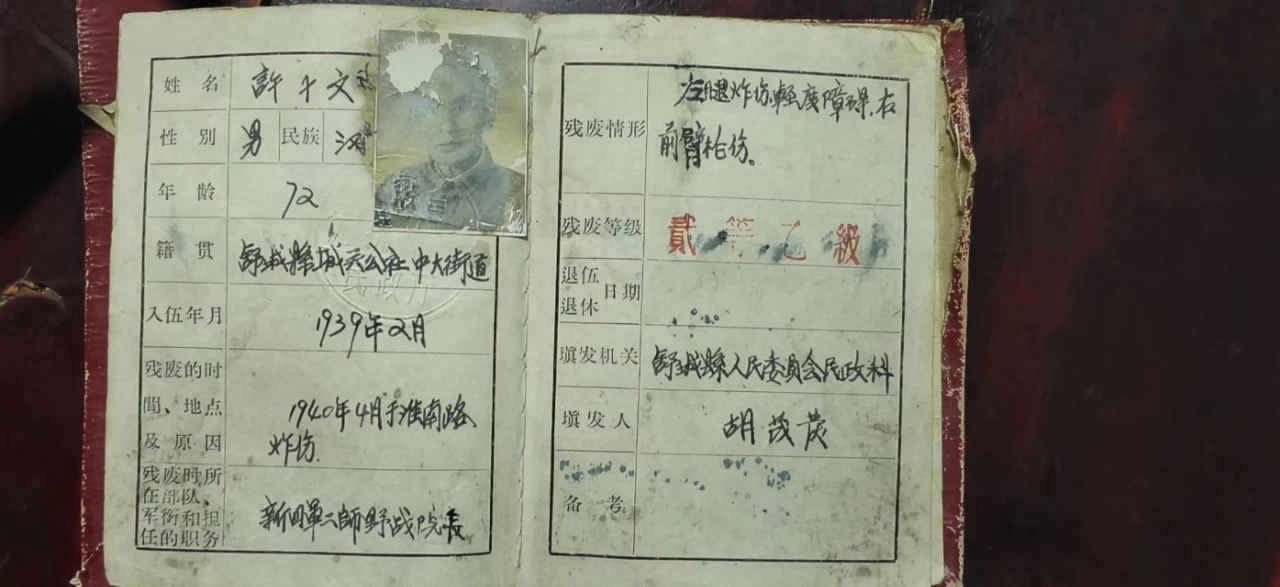 姓名 許子文
性别 男 民族 汉
年龄 72
籍贯 舒城縣城关公社中大街道
民政厅
入伍年月 1939年2月
残废的时
間、地点
及原因
1940年4月于淮南路
炸伤.
残废时所
在部队、
军衔和担
任的职务
新四軍二師野战院長
残废情形
左腿炸伤.輕度障碍.右
前臂枪伤。
残废等级 貳等乙級
退伍
退休
日期
填发机关 舒城縣人民委員会民政科
填发人 胡茂
备考